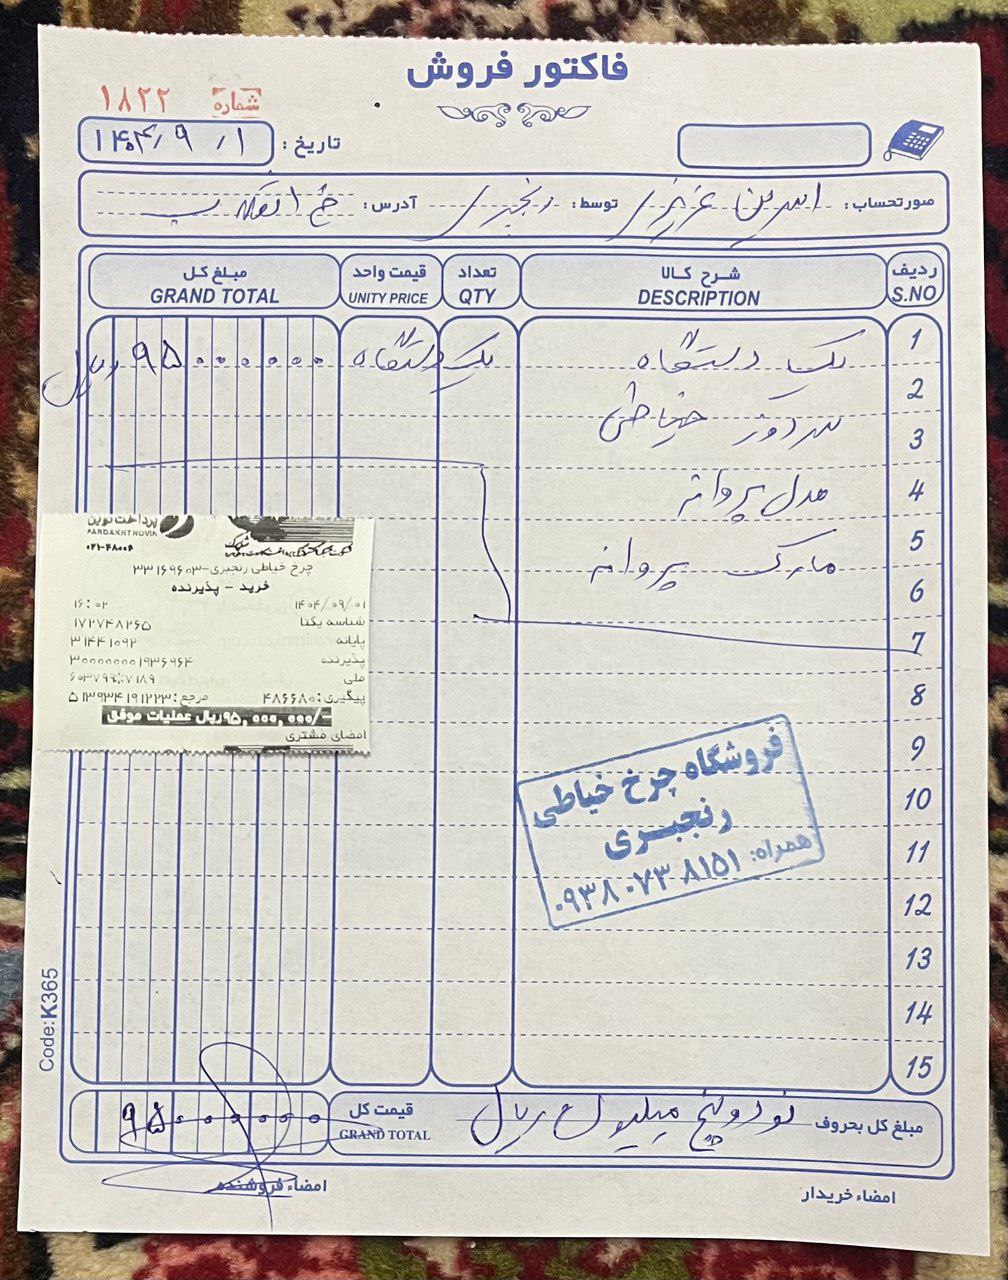 فاکتور فروش
شماره ۱۸۲۲
تاریخ : ۱۴۰۴/۹/۱
صورتحساب : عزیزی توسط : رنجبری آدرس : خ انقلاب
ردیف شرح کالا تعداد قیمت واحد مبلغ کل
S.NO DESCRIPTION QTY UNITY PRICE GRAND TOTAL
1 یک دستگاه یک دستگاه ۹۵۰۰۰۰۰۰ ریال
2
3 سردوز خیاطی
4 مدل پروانه
5
6 مارک پروانه
7
8
9
10
11
12
13
14
15
پرداخت نوین
PARDAKHT NOVIN
۰۲۱-۴۸۰۰۶
چرخ خیاطی رنجبری-۳۳۱۶۹۶۰۳
خرید - پذیرنده
۱۴۰۴/۰۹/۰۱ ۱۶:۰۲
شناسه یکتا ۱۷۲۷۴۸۲۶۵
پایانه ۳۱۴۴۱۰۹۲
پذیرنده ۳۰۰۰۰۰۰۰۱۹۳۶۹۶۴
ملی
پیگیری:۴۸۶۶۸۰ مرجع:۵۱۳۹۳۴۱۹۱۲۲۳
۹۵,۰۰۰,۰۰۰/-ریال عملیات موفق
امضای مشتری
فروشگاه چرخ خیاطی
رنجبری
همراه: ۰۹۳۸۰۷۳۸۱۵۱
Code:K365
مبلغ کل بحروف نود و پنج میلیون ریال قیمت کل ۹۵۰۰۰۰۰۰
GRAND TOTAL
امضاء خریدار امضاء فروشنده